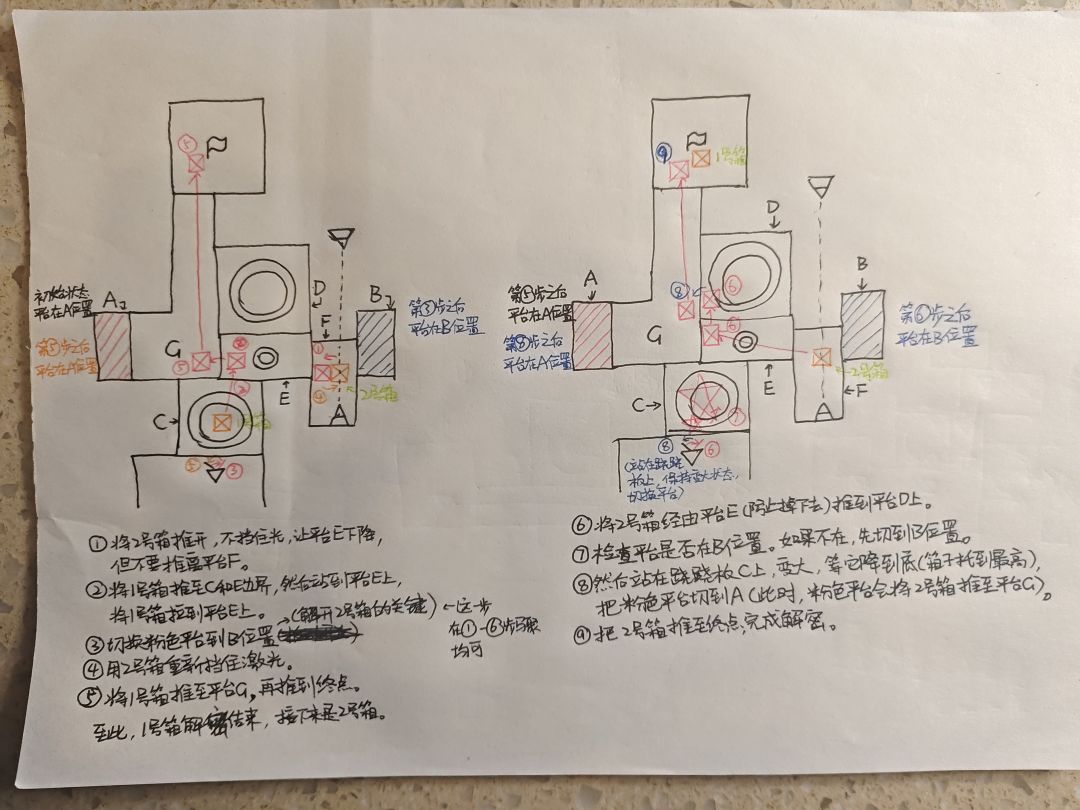 初始状态
平台在A位置
第⑤步之后
平台在A位置
A
G
C
D
F
B
E
第③步之后
平台在B位置
2号箱
①
②
③
④
⑤
1号箱
D
A
B
G
C
E
F
第⑤步之后
平台在A位置
第⑧步之后
平台在A位置
第⑥步之后
平台在B位置
2号箱
⑥
⑦
⑧
⑨
(站在跷跷
板上,保持变大状态,
切换平台)
①将2号箱推开,不挡住光,让平台E下降,
但不要推离平台F。
②将1号箱推至C和E边界,然后站到平台E上,
将1号箱拉到平台E上。
③切换粉色平台到B位置
(解开2号箱的关键)
←这一步
在①-⑥步骤
均可
④用2号箱重新挡住激光。
⑤将1号箱推至平台G,再推到终点。
至此,1号箱解密结束,接下来是2号箱。
⑥将2号箱经由平台E(防止掉下去)推到平台D上。
⑦检查平台是否在B位置。如果不在,先切到B位置。
⑧然后站在跷跷板C上,变大,等它降到底(箱子抬到最高),
把粉色平台切到A(此时,粉色平台会将2号箱推至平台G)。
⑨把2号箱推至终点,完成解密。